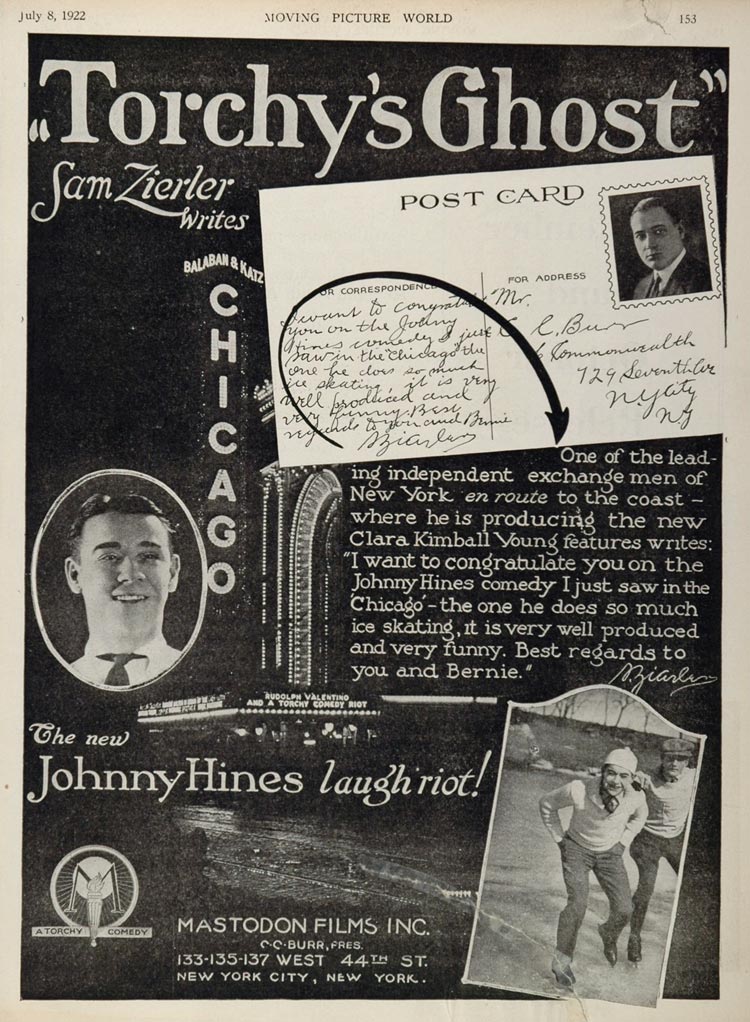 July 8, 1922
MOVING PICTURE WORLD
153
"Torchy's Ghost"
Sam Zierler
Writes
BALABAN & KATZ
CHICAGO
POST CARD
OR CORRESPONDENCE
FOR ADDRESS
I want to congratulate
you on the Johnny
Hines comedy I just
saw in the "Chicago" the
one he does so much
ice skating, it is very
well produced and
very funny. Best
regards to you and Bernie
SZierler
Mr.
C. C. Burr
% Commonwealth
729 Seventh Ave
N.Y. City
N.Y.
One of the lead-
ing independent exchange men of
New York en route to the coast –
where he is producing the new
Clara Kimball Young features writes:
"I want to congratulate you on the
Johnny Hines comedy I just saw in the
'Chicago' - the one he does so much
ice skating, it is very well produced
and very funny. Best regards to
you and Bernie."
SZierler
RUDOLPH VALENTINO
AND A TORCHY COMEDY RIOT
The new
Johnny Hines laugh riot!
M
A TORCHY COMEDY
MASTODON FILMS INC.
C·C·BURR, PRES.
133-135-137 WEST 44TH ST.
NEW YORK CITY, NEW YORK.